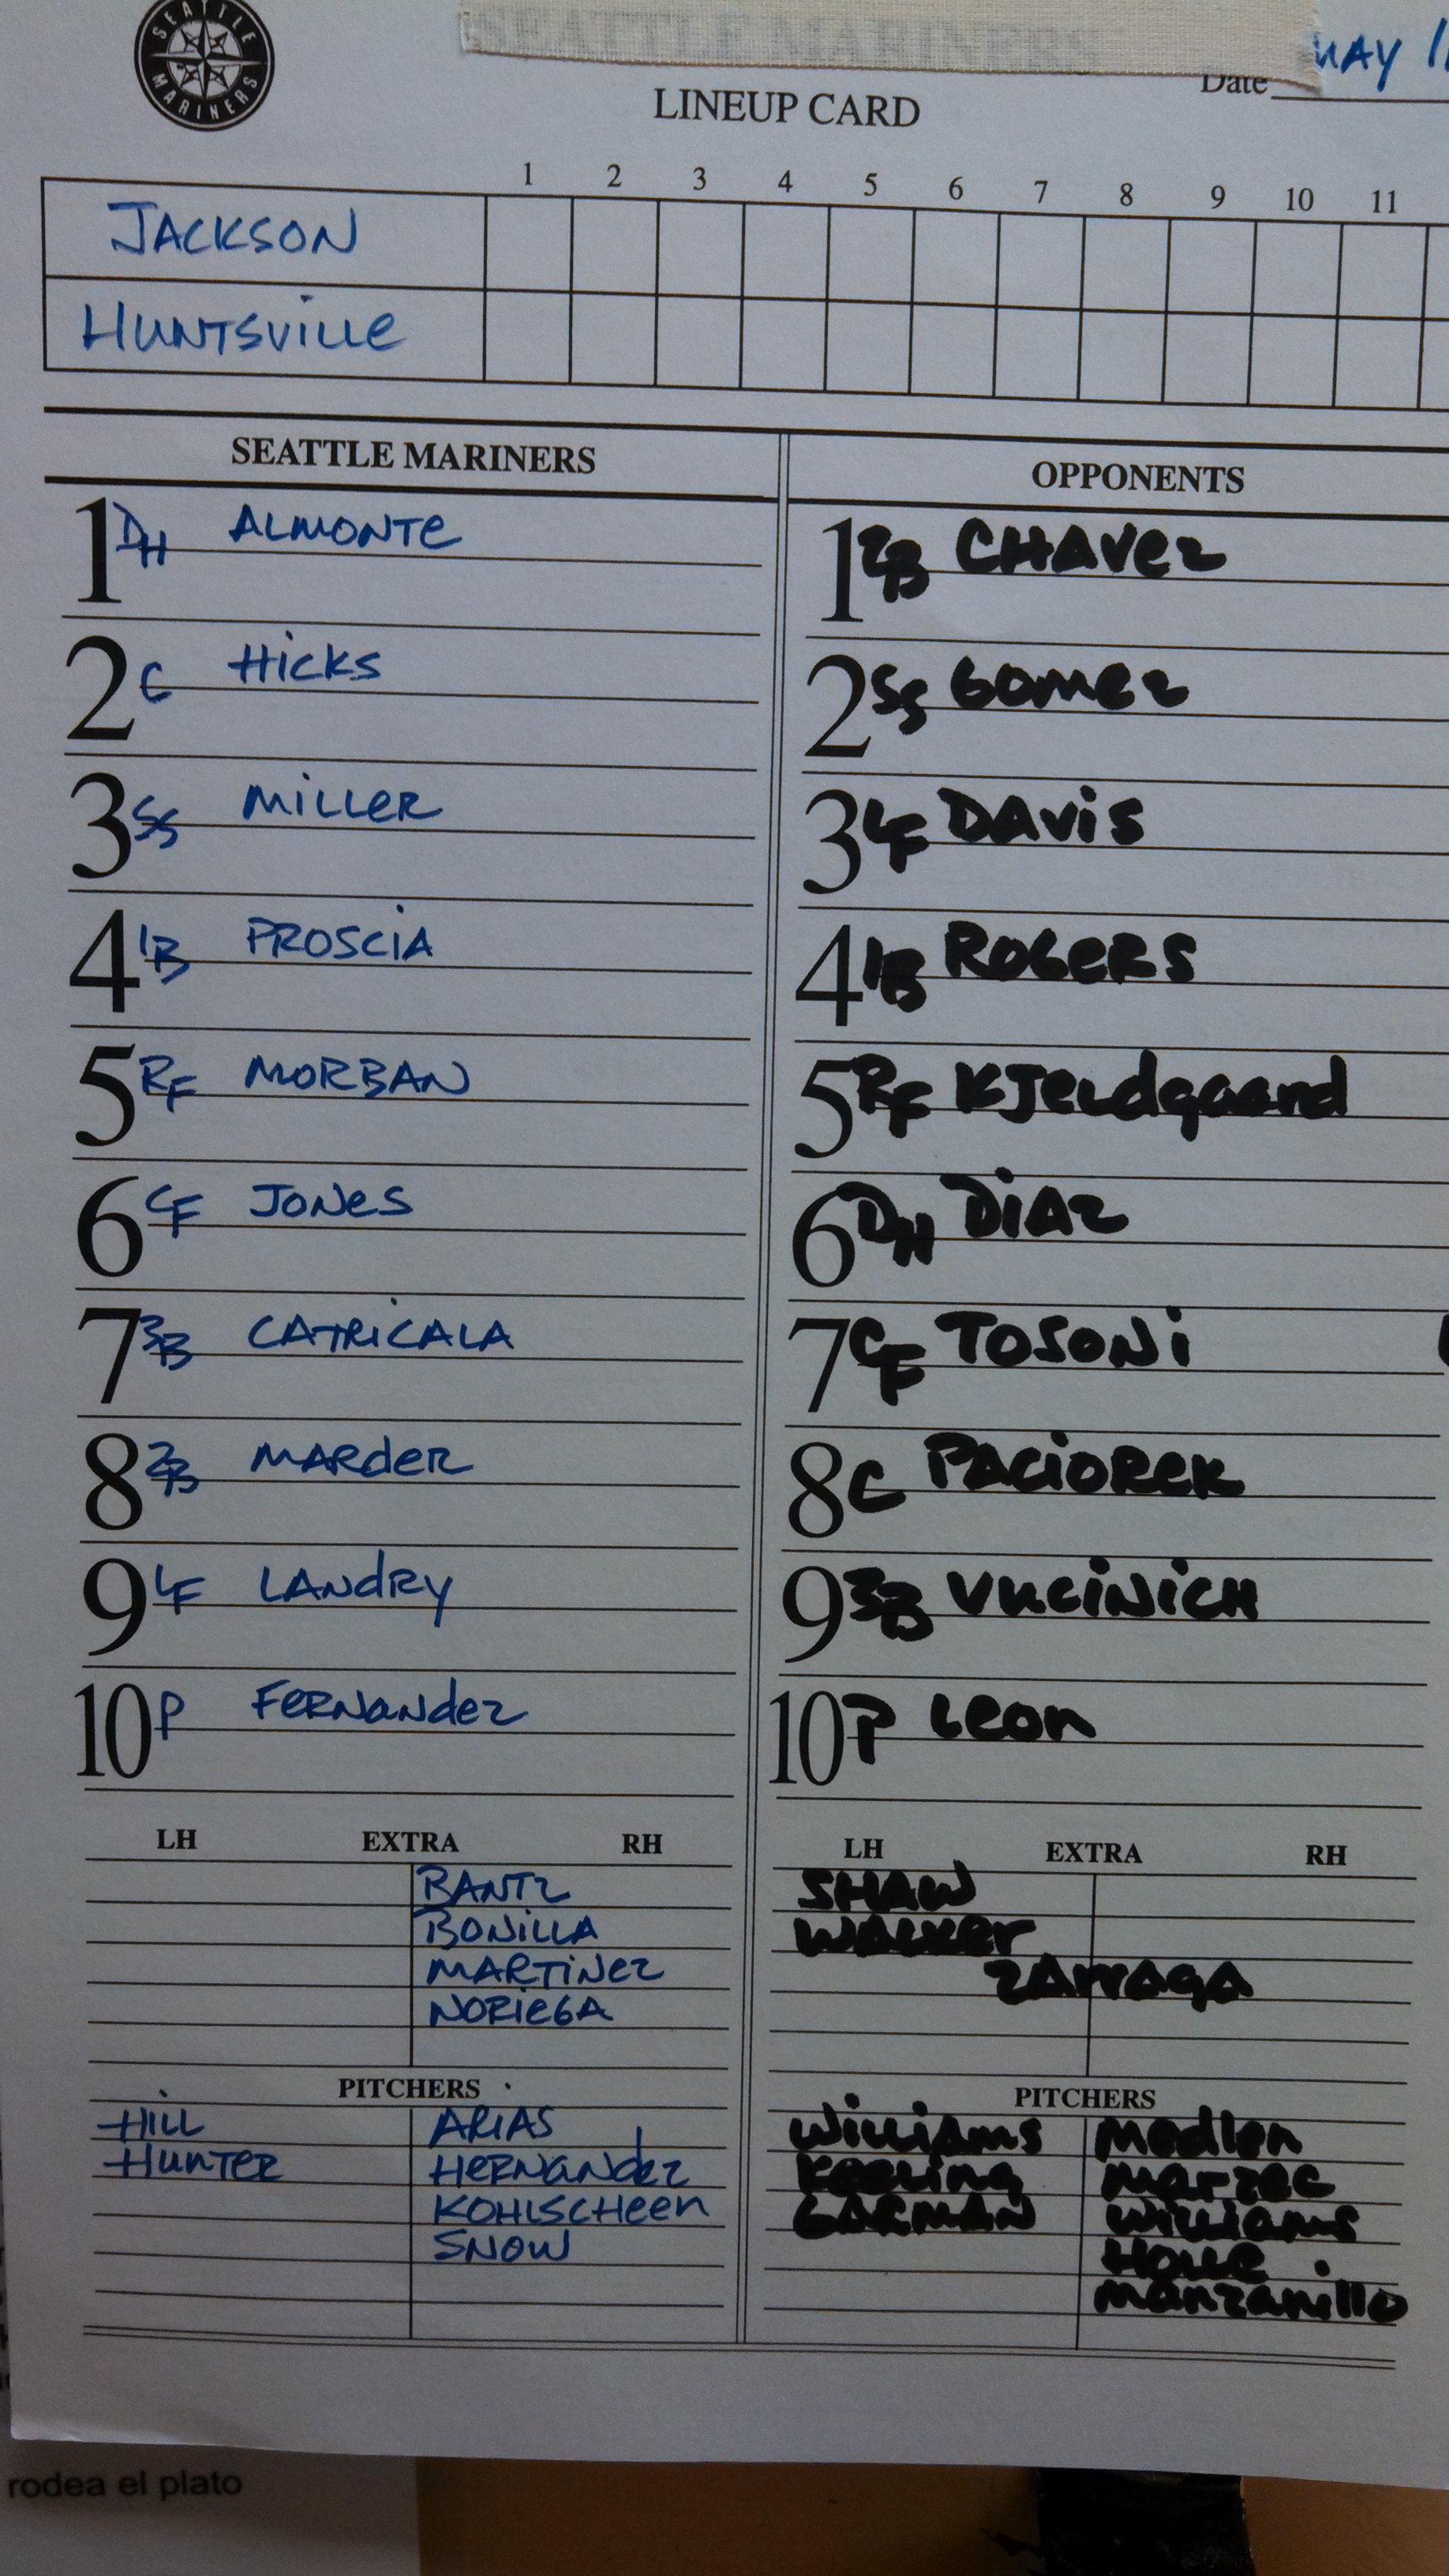 SEATTLE MARINERS
SEATTLE MARINERS
Date MAY
LINEUP CARD
1 2 3 4 5 6 7 8 9 10 11
JACKSON
HUNTSVILLe
SEATTLE MARINERS
OPPONENTS
1 DH ALMONTe
1 2B CHAVez
2 C HiCKS
2 SS Gomez
3 SS MiLLeR
3 LF DAViS
4 1B PROSCiA
4 1B ROGeRS
5 RF MORBAN
5 RF KJeLdgaard
6 CF JONeS
6 DH DiAz
7 3B CATRiCALA
7 CF TOSONi
8 2B MARdeR
8 C PACiOReK
9 LF LANdRy
9 3B VuCiNiCH
10 P FeRNandez
10 P Leon
LH EXTRA RH
LH EXTRA RH
BANTz
SHAW
BONiLLA
WALKer
MARTiNez
zArraga
NORieGA
PITCHERS
PITCHERS
HiLL ARiAS
Williams Medlen
HUNTeR HeRNandez
Keeling marzec
KOHLSCHeen
GARMAN Williams
SNOW
Holle
manzanillo
rodea el plato